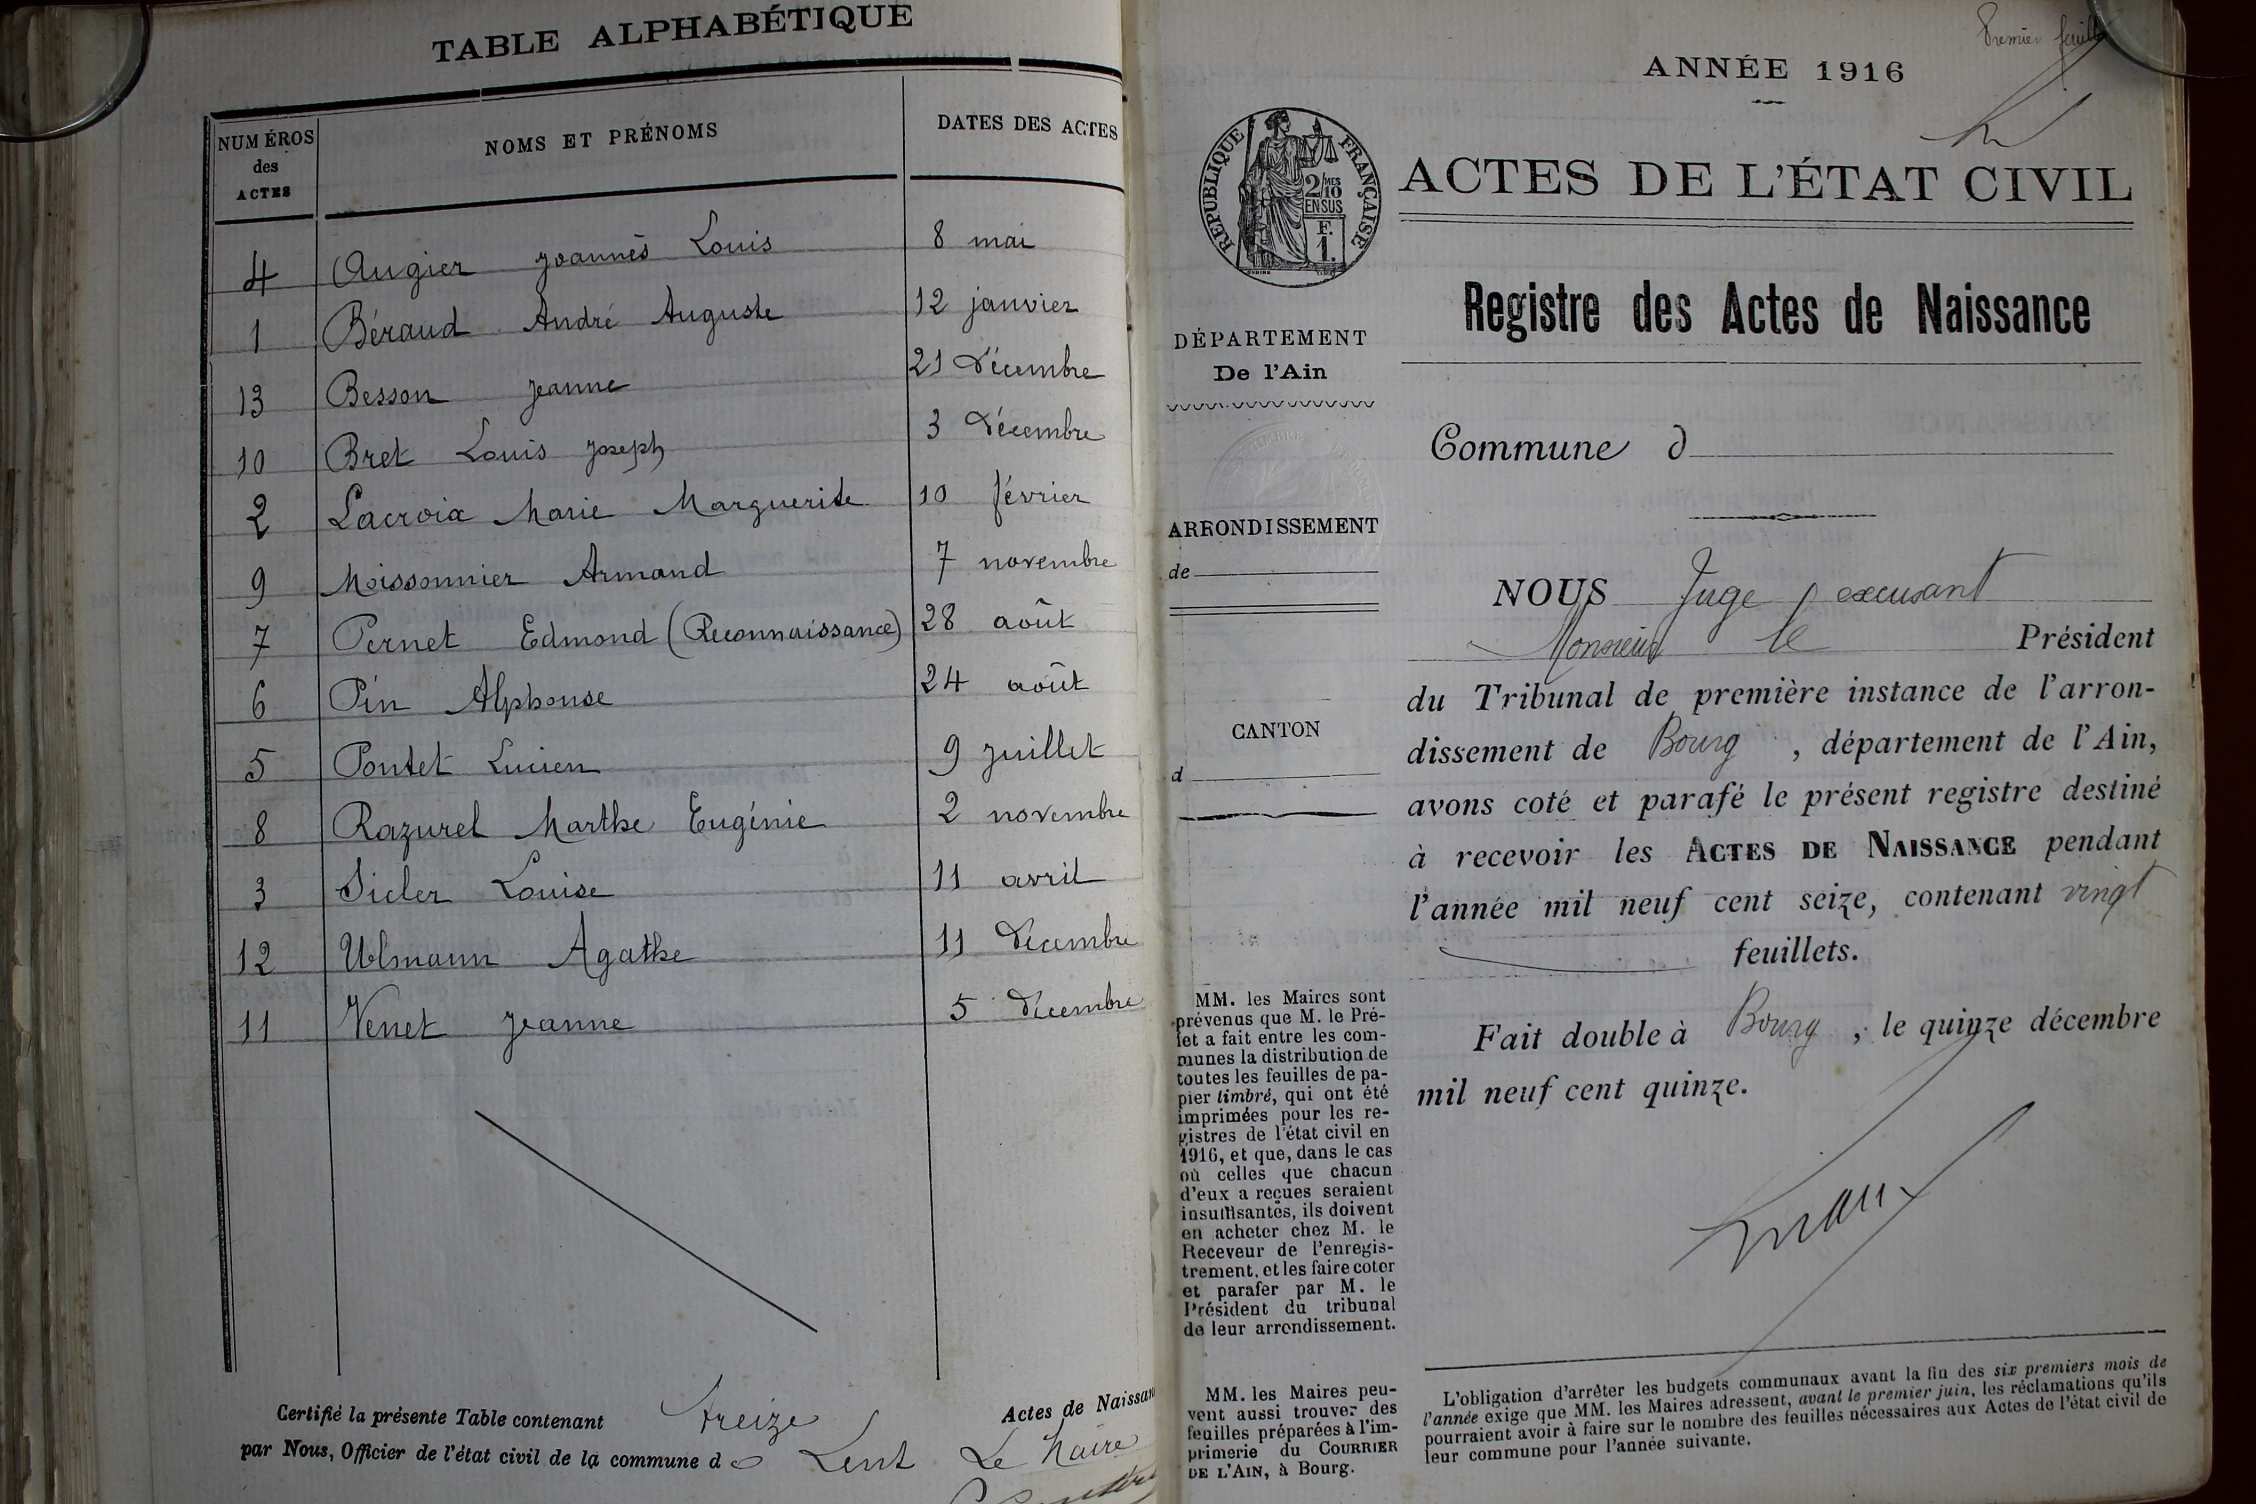 TABLE ALPHABÉTIQUE
NUMÉROS
des
ACTES
NOMS ET PRÉNOMS
DATES DES ACTES
4 Augier Joannès Louis 8 mai
1 Béraud André Auguste 12 janvier
13 Besson Jeanne 21 Décembre
10 Bret Louis Joseph 3 Décembre
2 Lacroix Marie Marguerite 10 février
9 Moissonnier Armand 7 novembre
7 Pernet Edmond (Reconnaissance) 28 août
6 Pin Alphonse 24 août
5 Pontet Lucien 9 juillet
8 Razurel Marthe Eugénie 2 novembre
3 Sicler Louise 11 avril
12 Ulmann Agathe 11 Décembre
11 Venet Jeanne 5 Décembre
Certifié la présente Table contenant treize Actes de Naissan
par Nous, Officier de l'état civil de la commune de Lent Le Maire
Premier feuillet
ANNÉE 1916
RÉPUBLIQUE FRANÇAISE
2/10MES
EN SUS
F.
1.
ACTES DE L'ÉTAT CIVIL
Registre des Actes de Naissance
DÉPARTEMENT
De l'Ain
Commune d
ARRONDISSEMENT
de
CANTON
d
NOUS Juge excusant
Monsieur le Président
du Tribunal de première instance de l'arron-
dissement de Bourg, département de l'Ain,
avons coté et parafé le présent registre destiné
à recevoir les ACTES DE NAISSANCE pendant
l'année mil neuf cent seize, contenant vingt
feuillets.
Fait double à Bourg, le quinze décembre
mil neuf cent quinze.
MM. les Maires sont
prévenus que M. le Pré-
fet a fait entre les com-
munes la distribution de
toutes les feuilles de pa-
pier timbré, qui ont été
imprimées pour les re-
gistres de l'état civil en
1916, et que, dans le cas
où celles que chacun
d'eux a reçues seraient
insuffisantes, ils doivent
en acheter chez M. le
Receveur de l'enregis-
trement, et les faire coter
et parafer par M. le
Président du tribunal
de leur arrondissement.
MM. les Maires peu-
vent aussi trouver des
feuilles préparées à l'im-
primerie du COURRIER
DE L'AIN, à Bourg.
L'obligation d'arrêter les budgets communaux avant la fin des six premiers mois de
l'année exige que MM. les Maires adressent, avant le premier juin, les réclamations qu'ils
pourraient avoir à faire sur le nombre des feuilles nécessaires aux Actes de l'état civil de
leur commune pour l'année suivante.